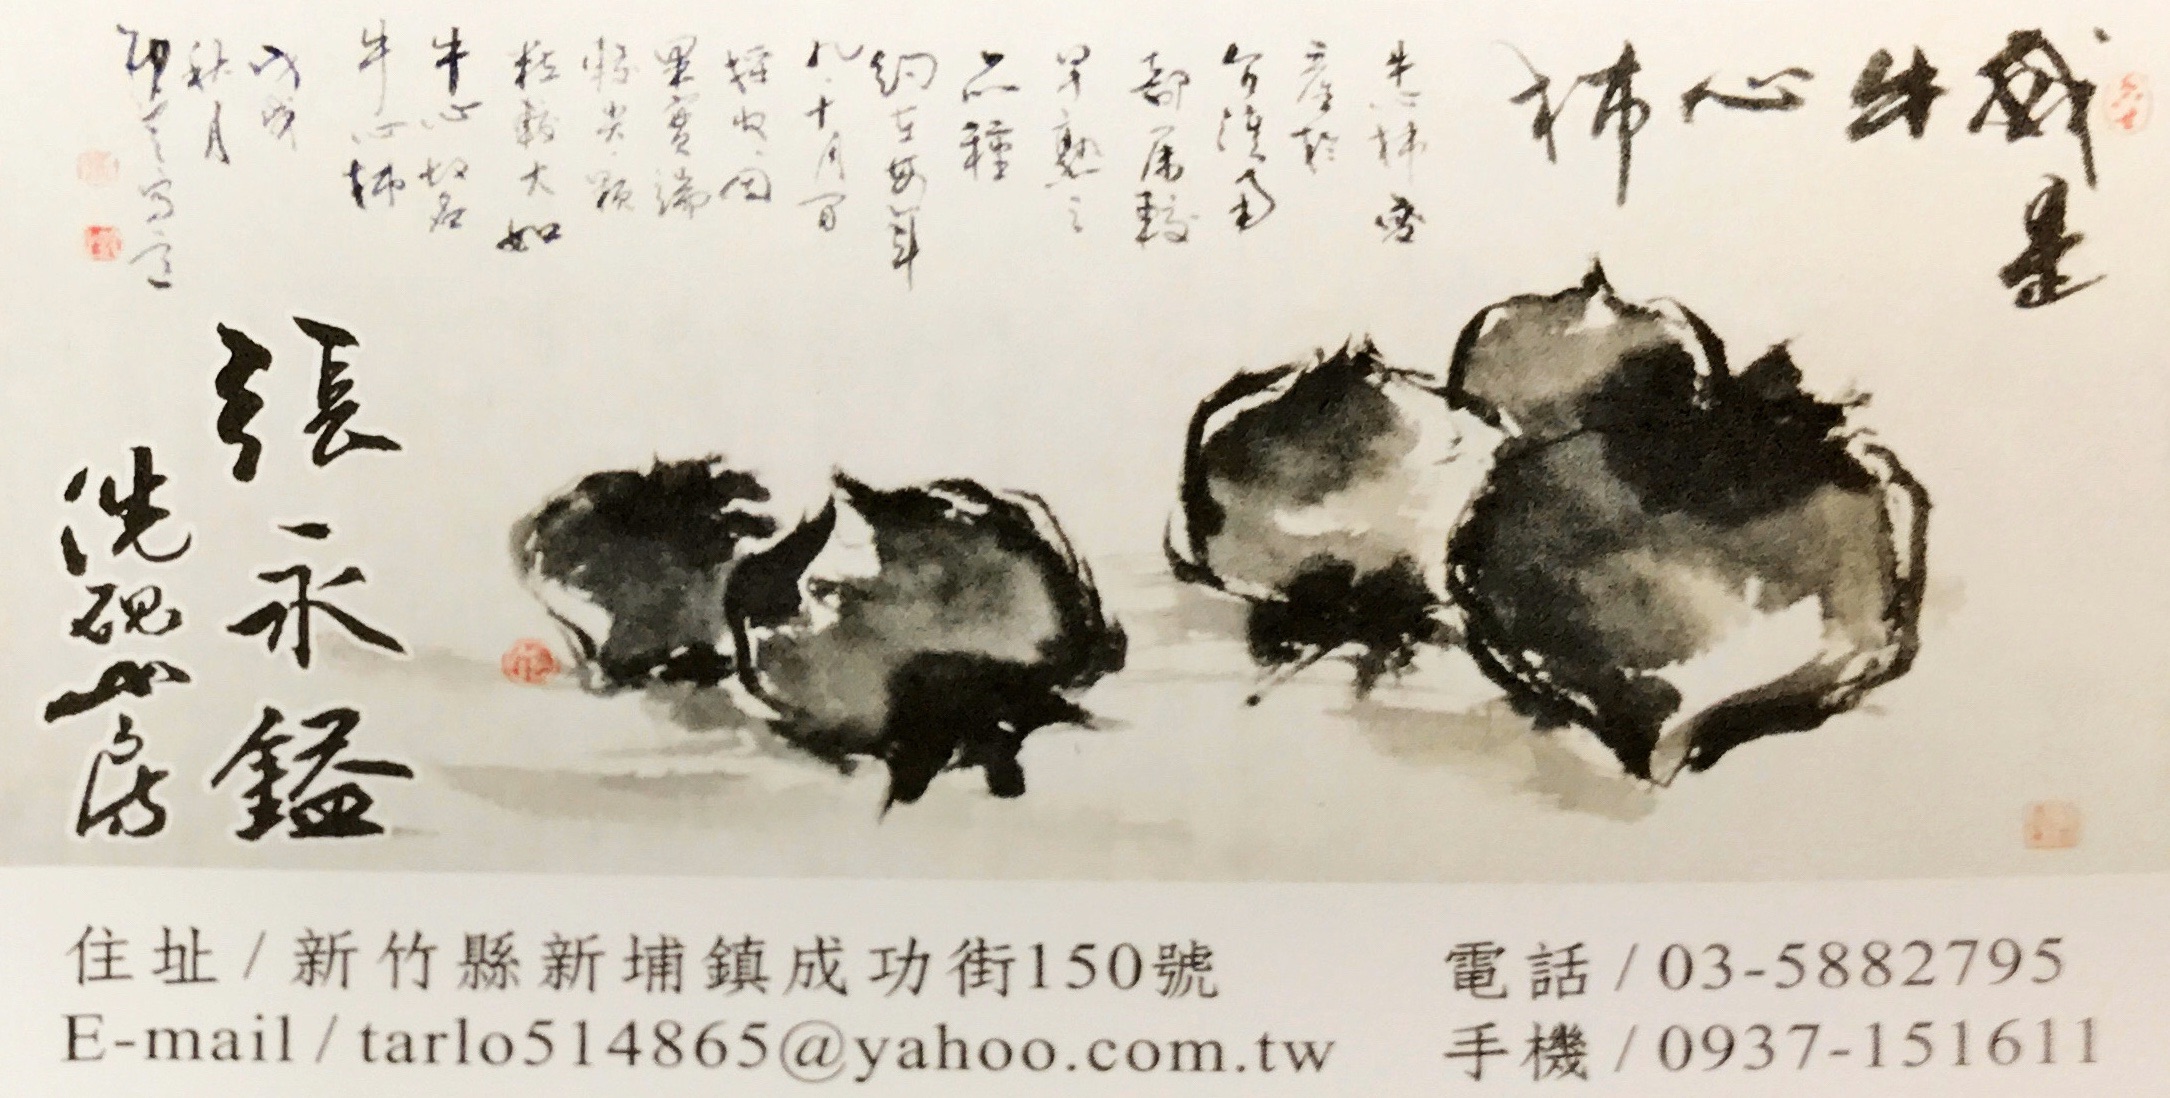 我是
牛心柿
牛心柿盛
產於
台灣南
部屬較
早熟之
品種
約在每年
九、十月間
採收、因
果實端
稍尖、顆
粒較大如
牛心故名
牛心柿
戊戌
秋月
張永鎰
洗硯山房
住址/新竹縣新埔鎮成功街150號
電話/03-5882795
E-mail/tarlo514865@yahoo.com.tw
手機/0937-151611